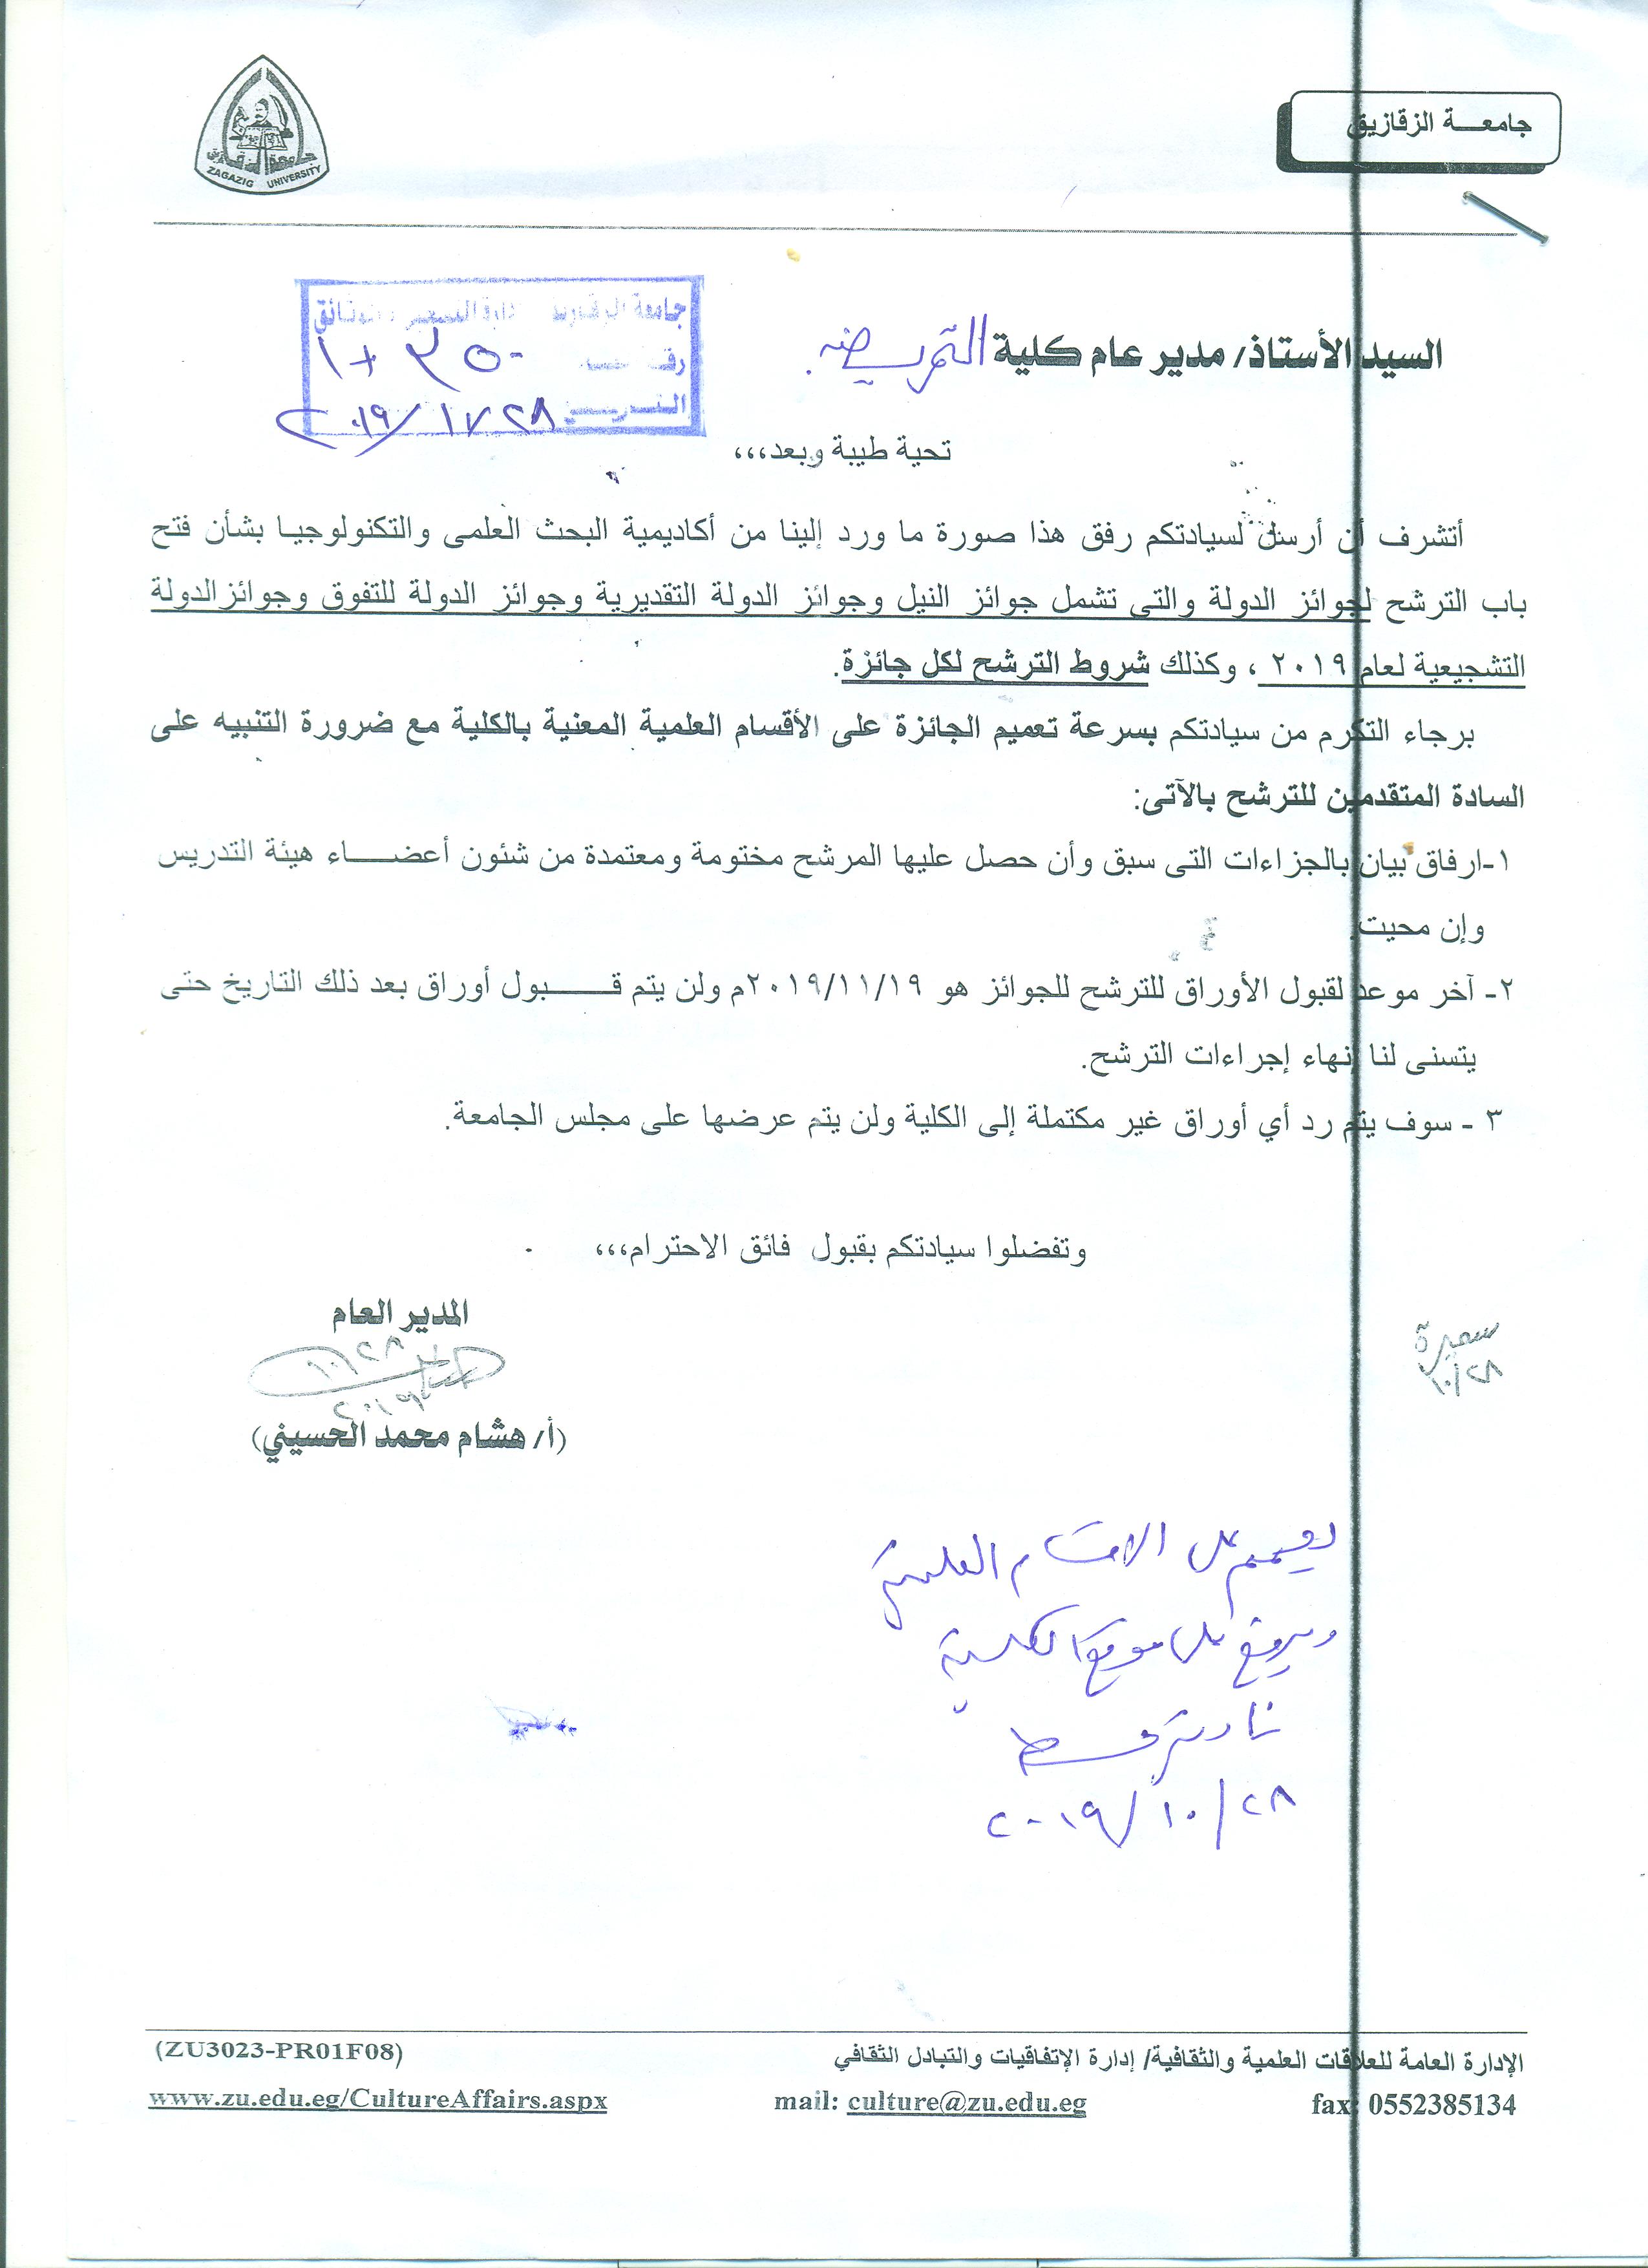 جامعة الزقازيق
جامعة الزقازيق
ZAGAZIG UNIVERSITY
جامعة الزقازيق
رقم
السيد الأستاذ/ مدير عام كلية التمريض.
تحية طيبة وبعد،،،
أتشرف أن أرسل لسيادتكم رفق هذا صورة ما ورد إلينا من أكاديمية البحث العلمى والتكنولوجيا بشأن فتح
باب الترشح لجوائز الدولة والتى تشمل جوائز النيل وجوائز الدولة التقديرية وجوائز الدولة للتفوق وجوائزالدولة
التشجيعية لعام ٢٠١٩ ، وكذلك شروط الترشح لكل جائزة.
برجاء التكرم من سيادتكم بسرعة تعميم الجائزة على الأقسام العلمية المعنية بالكلية مع ضرورة التنبيه على
السادة المتقدمين للترشح بالآتى:
١-ارفاق بيان بالجزاءات التى سبق وأن حصل عليها المرشح مختومة ومعتمدة من شئون أعضاء هيئة التدريس
وإن محيت.
٢- آخر موعد لقبول الأوراق للترشح للجوائز هو ٢٠١٩/١١/١٩م ولن يتم قبول أوراق بعد ذلك التاريخ حتى
يتسنى لنا إنهاء إجراءات الترشح.
٣ - سوف يتم رد أي أوراق غير مكتملة إلى الكلية ولن يتم عرضها على مجلس الجامعة.
وتفضلوا سيادتكم بقبول فائق الاحترام،،،
المدير العام
سميرة
١٠/٢٨
(أ/ هشام محمد الحسيني)
يعمم على الاقسام العلمية
ويرفع على موقع الكلية
٢٠١٩/١٠/٢٨
الإدارة العامة للعلاقات العلمية والثقافية/ إدارة الإتفاقيات والتبادل الثقافي
(ZU3023-PR01F08)
fax: 0552385134
mail: culture@zu.edu.eg
www.zu.edu.eg/CultureAffairs.aspx